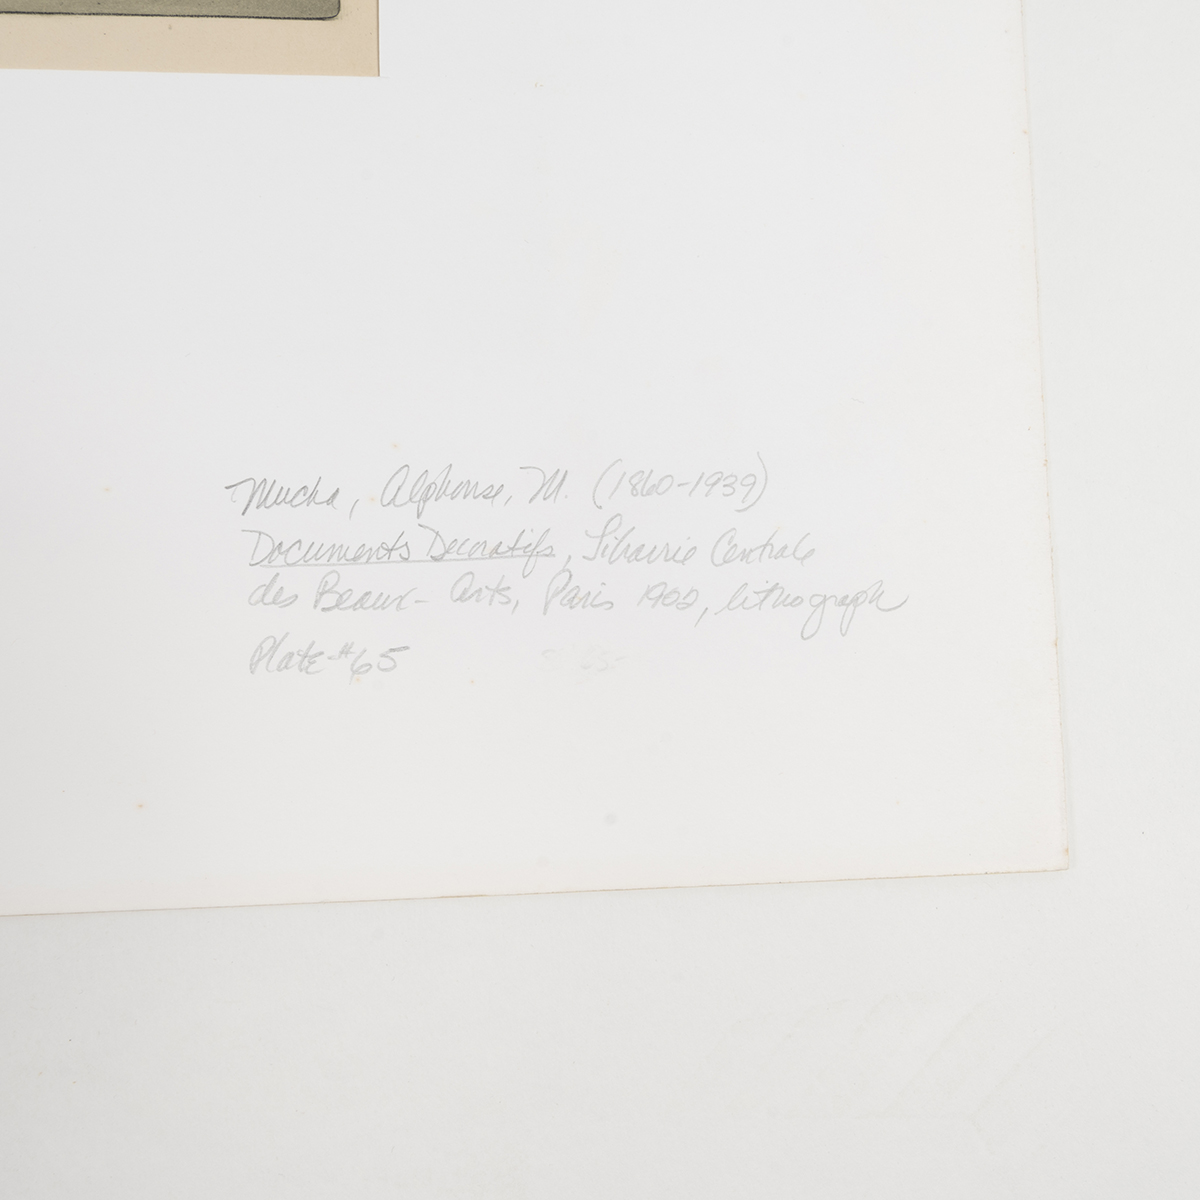 Mucha, Alphonse, M. (1860-1939)
Documents Decoratifs, Librairie Centrale
des Beaux-Arts, Paris 1902, lithograph
Plate #65